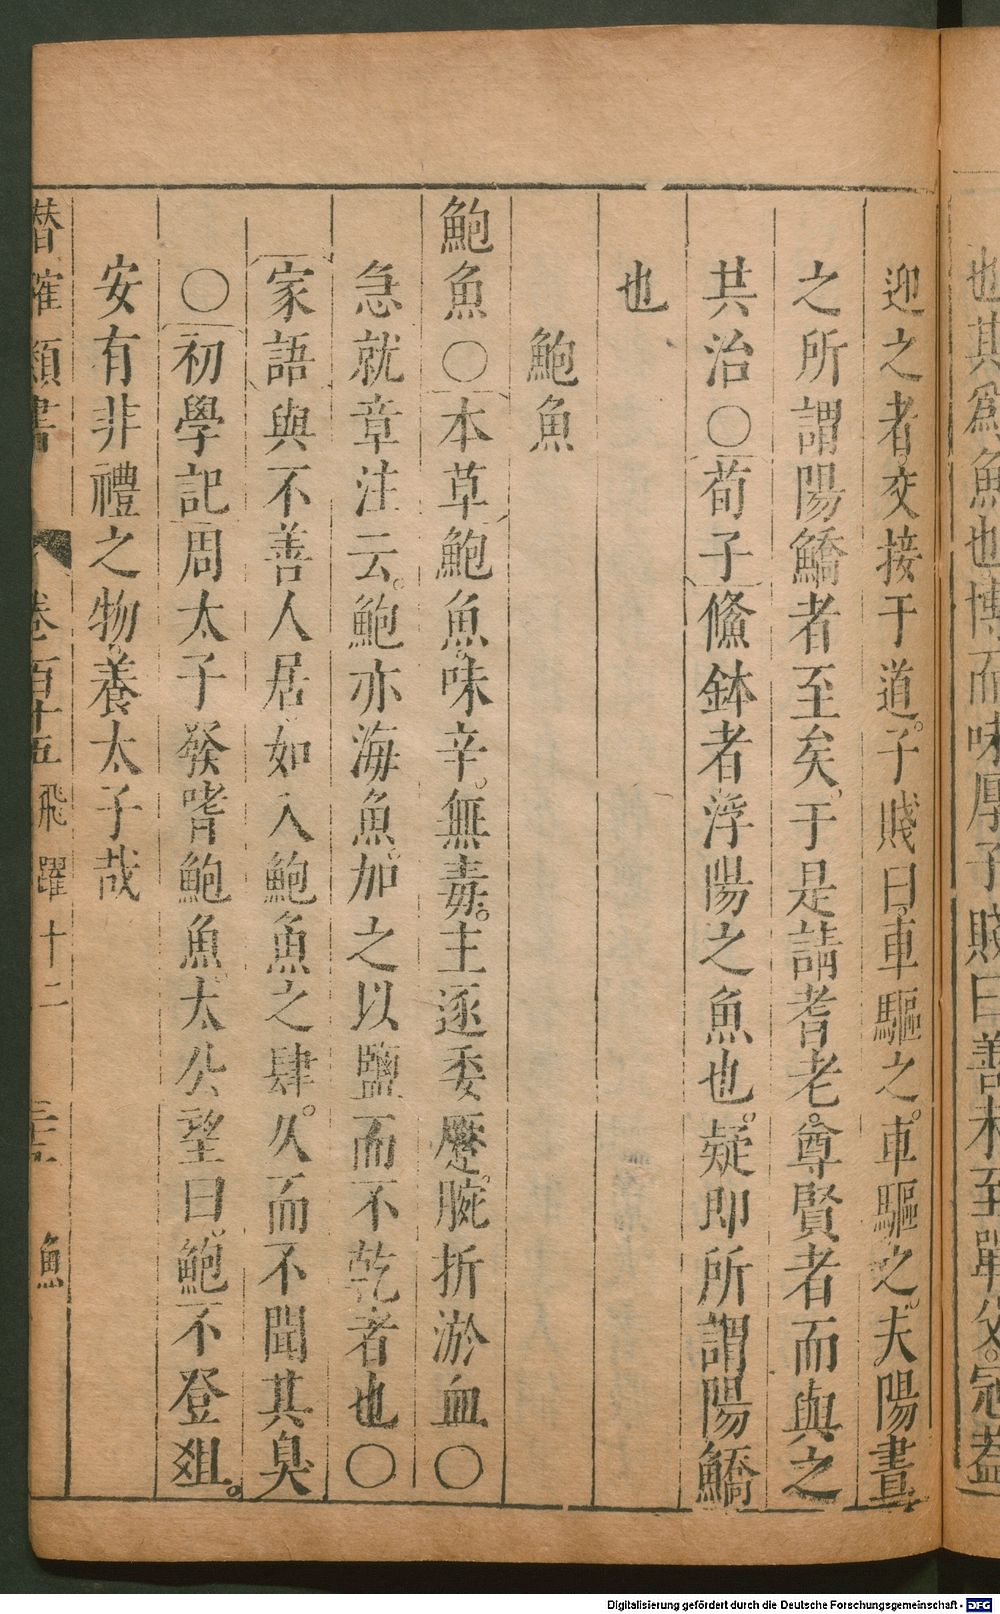 也其爲魚也博而味厚子賤曰善未至單父冠蓋
迎之者交接于道子賤曰車驅之車驅之夫陽晝
之所謂陽鱎者至矣于是請耆老尊賢者而與之
共治○荀子鯈鉢者浮陽之魚也疑即所謂陽鱎
也
鮑魚
鮑魚○本草鮑魚味辛無毒主逐委蹷腕折淤血○
急就章注云鮑亦海魚加之以鹽而不乾者也○
家語與不善人居如入鮑魚之肆久而不聞其臭
○初學記周太子發嗜鮑魚太公望曰鮑不登爼
安有非禮之物養太子哉
潛確類書 卷百十五 飛躍十二 魚
Digitalisierung gefördert durch die Deutsche Forschungsgemeinschaft - DFG